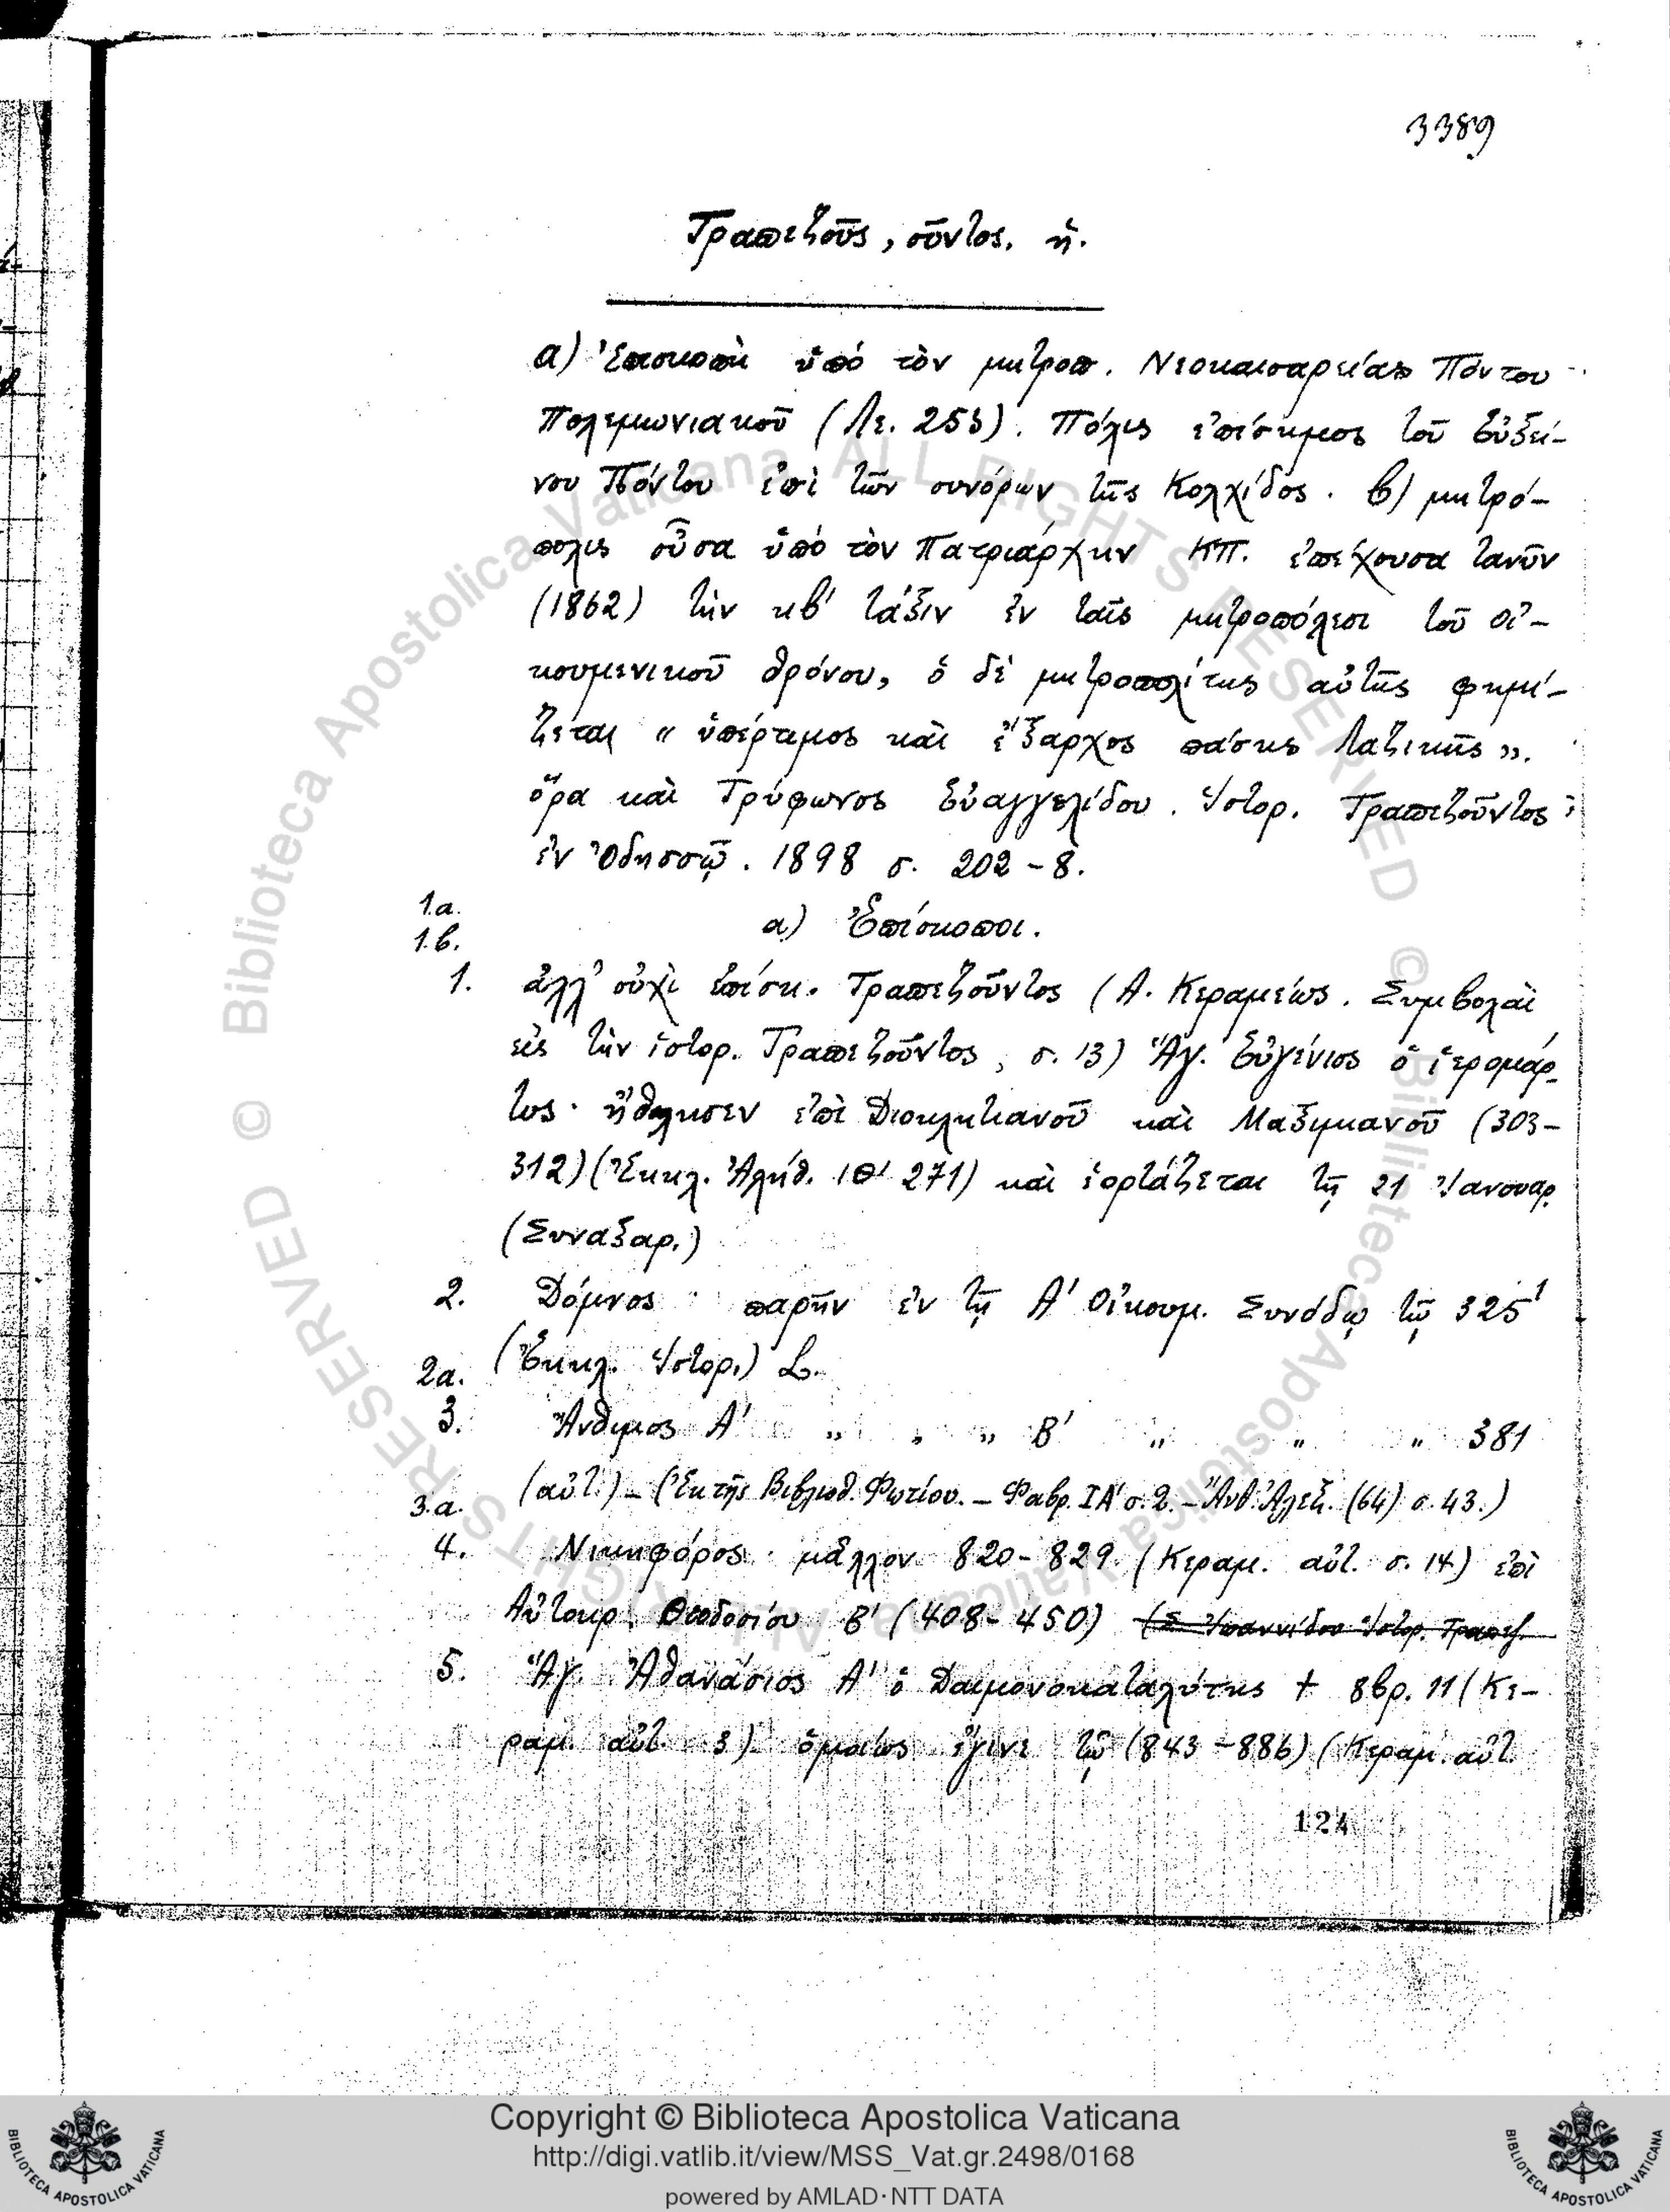 3389
Τραπεζοῦς, οῦντος. ἡ.
α) Ἐπισκοπὴ ὑπό τὸν μητροπ. Νεοκαισαρείας Πόντου
Πολεμωνιακοῦ (Λε. 253). Πόλις ἐπίσημος τοῦ Εὐξεί-
νου Πόντου ἐπὶ τῶν συνόρων τῆς Κολχίδος. β) μητρό-
πολις οὖσα ὑπό τὸν Πατριάρχην ΚΠ. ἐπέχουσα τανῦν
(1862) τὴν κβ' τάξιν ἐν ταῖς μητροπόλεσι τοῦ οἰ-
κουμενικοῦ θρόνου, ὁ δὲ μητροπολίτης αὐτῆς φημί-
ζεται « ὑπέρτιμος καὶ ἔξαρχος πάσης Λαζικῆς ».
ὅρα καὶ Τρύφωνος Εὐαγγελίδου. Ἱστορ. Τραπεζοῦντος
ἐν Ὀδησσῷ. 1898 σ. 202-8.
1.α.
α) Ἐπίσκοποι.
1.β.
1. ἀλλ' οὐχὶ ἐπίσκ. Τραπεζοῦντος (Α. Κεραμέως. Συμβολαὶ
εἰς τὴν ἱστορ. Τραπεζοῦντος, σ. 13) Ἅγ. Εὐγένιος ὁ ἱερομάρ-
τυς· ἤθλησεν ἐπὶ Διοκλητιανοῦ καὶ Μαξιμιανοῦ (303-
312) (Ἐκκλ. Ἀλήθ. ΙΘ' 271) καὶ ἑορτάζεται τῇ 21 Ἰανουαρ.
(Συναξαρ.)
2. Δόμνος· παρῆν ἐν τῇ Α' Οἰκουμ. Συνόδῳ τῷ 325
(Ἐκκλ. Ἱστορ.) L.
2α.
3. Ἄνθιμος Α' „ „ „ Β' „ „ „ 381
(αὐτ.) – (Ἐκ τῆς Βιβλιοθ. Φωτίου. – Φαβρ. ΙΑ' σ. 2. – Ἀνθ. Ἀλεξ. (64) σ. 43.)
3.α.
4. Νικηφόρος· μᾶλλον 820-829 (Κεραμ. αὐτ. σ. 14) ἐπὶ
Αὐτοκρ. Θεοδοσίου Β' (408-450) (Σ Ἰωαννίδου Ἱστορ. Τραπεζ.
5. Ἅγ. Ἀθανάσιος Α' ὁ Δαιμονοκαταλύτης † 8βρ. 11 (Κε-
ραμ. αὐτ. 3) ὁμοίως ἔγινε τῷ (843-886) (Κεραμ. αὐτ.
124
© Biblioteca Apostolica Vaticana ALL RIGHTS RESERVED © Biblioteca Apostolica Vaticana ALL RIGHTS RESERVED
Copyright © Biblioteca Apostolica Vaticana
http://digi.vatlib.it/view/MSS_Vat.gr.2498/0168
powered by AMLAD·NTT DATA
BIBLIOTECA APOSTOLICA VATICANA
BIBLIOTECA APOSTOLICA VATICANA